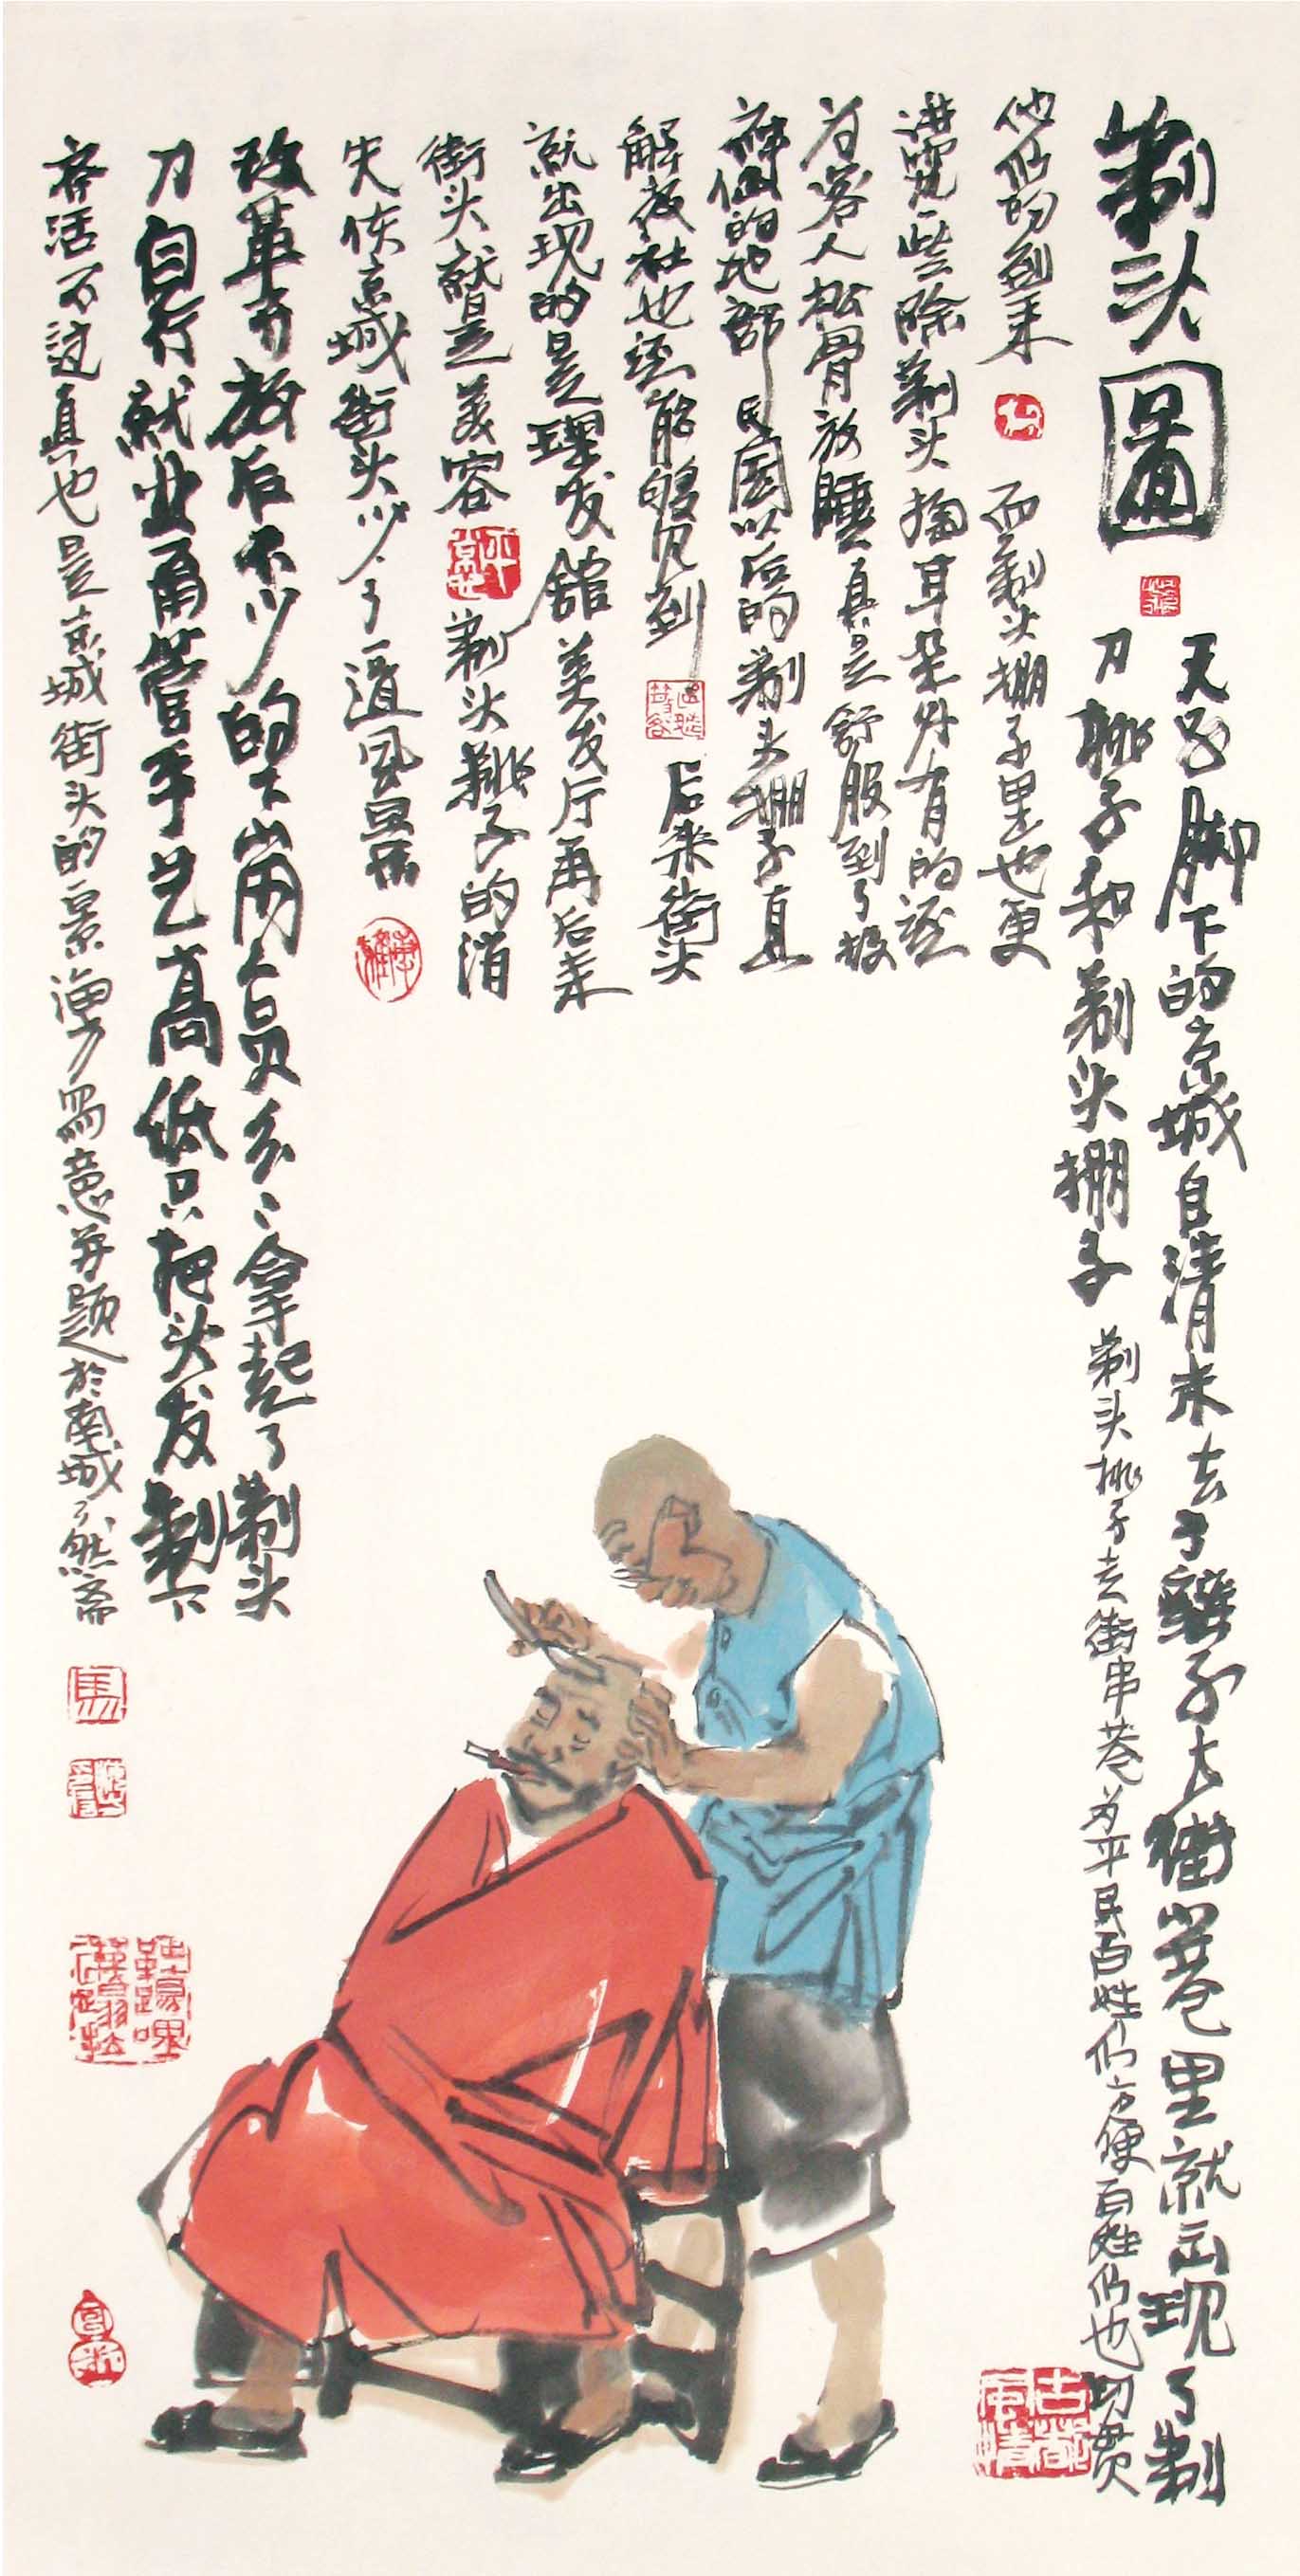 剃头圖
天子脚下的京城自清末去了辫子大街小巷里就出现了剃
刀挑子和剃头棚子
剃头挑子走街串巷为平民百姓们方便百姓们也切贯
他们的到来
而剃头棚子里也更
讲究些除剃头掏耳朵外有的还
为客人松骨放睡真是舒服到了极
神仙的地部民国以后的剃头棚子直
解放社也还能够见到
后来街头
就出现的是理发舘美发厅再后来
街头就是美容
剃头挑子的消
失使京城街头少了一道风景
改革开放后不少的下岗人员又拿起了剃头
刀自行就业甭管手艺高低只把头发剃下
齐活不过真也是京城街头的一景海方写意并题於南城了然斋
马
古都
风情